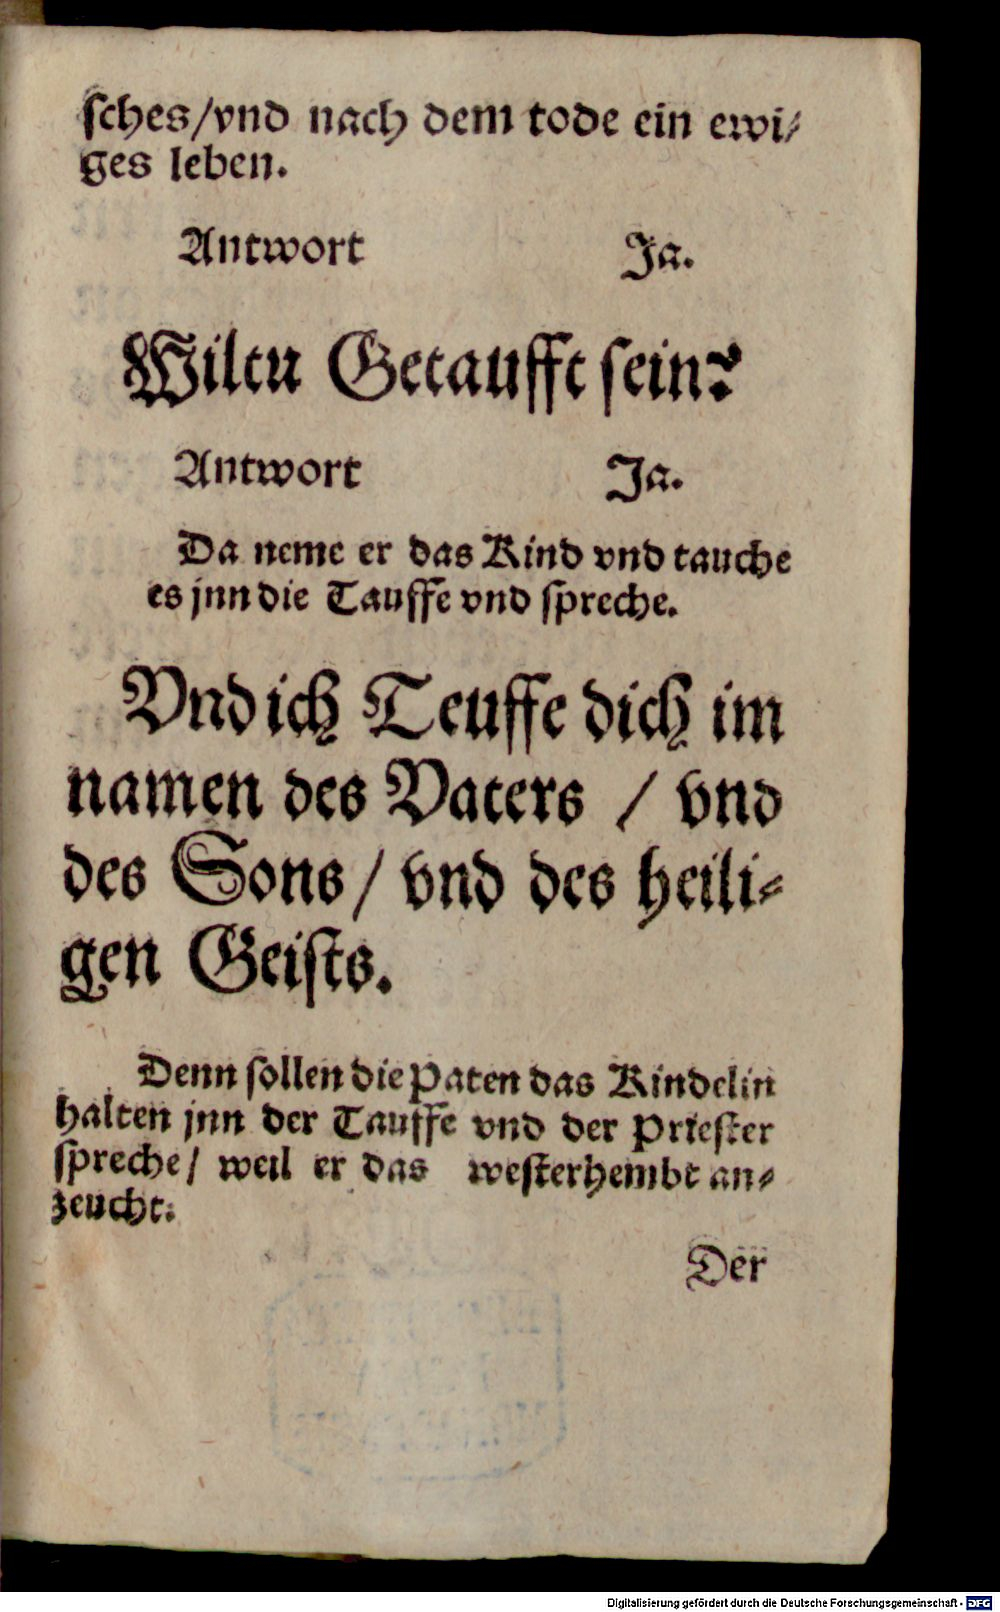 sches/vnd nach dem tode ein ewi-
ges leben.
Antwort Ja.
Wiltu Getaufft sein?
Antwort Ja.
Da neme er das Kind vnd tauche
es jnn die Tauffe vnd spreche.
Vnd ich Teuffe dich im
namen des Vaters / vnd
des Sons / vnd des heili-
gen Geists.
Denn sollen die Paten das Kindelin
halten jnn der Tauffe vnd der Priester
spreche / weil er das westerhembt an-
zeucht.
Der
Digitalisierung gefördert durch die Deutsche Forschungsgemeinschaft - DFG